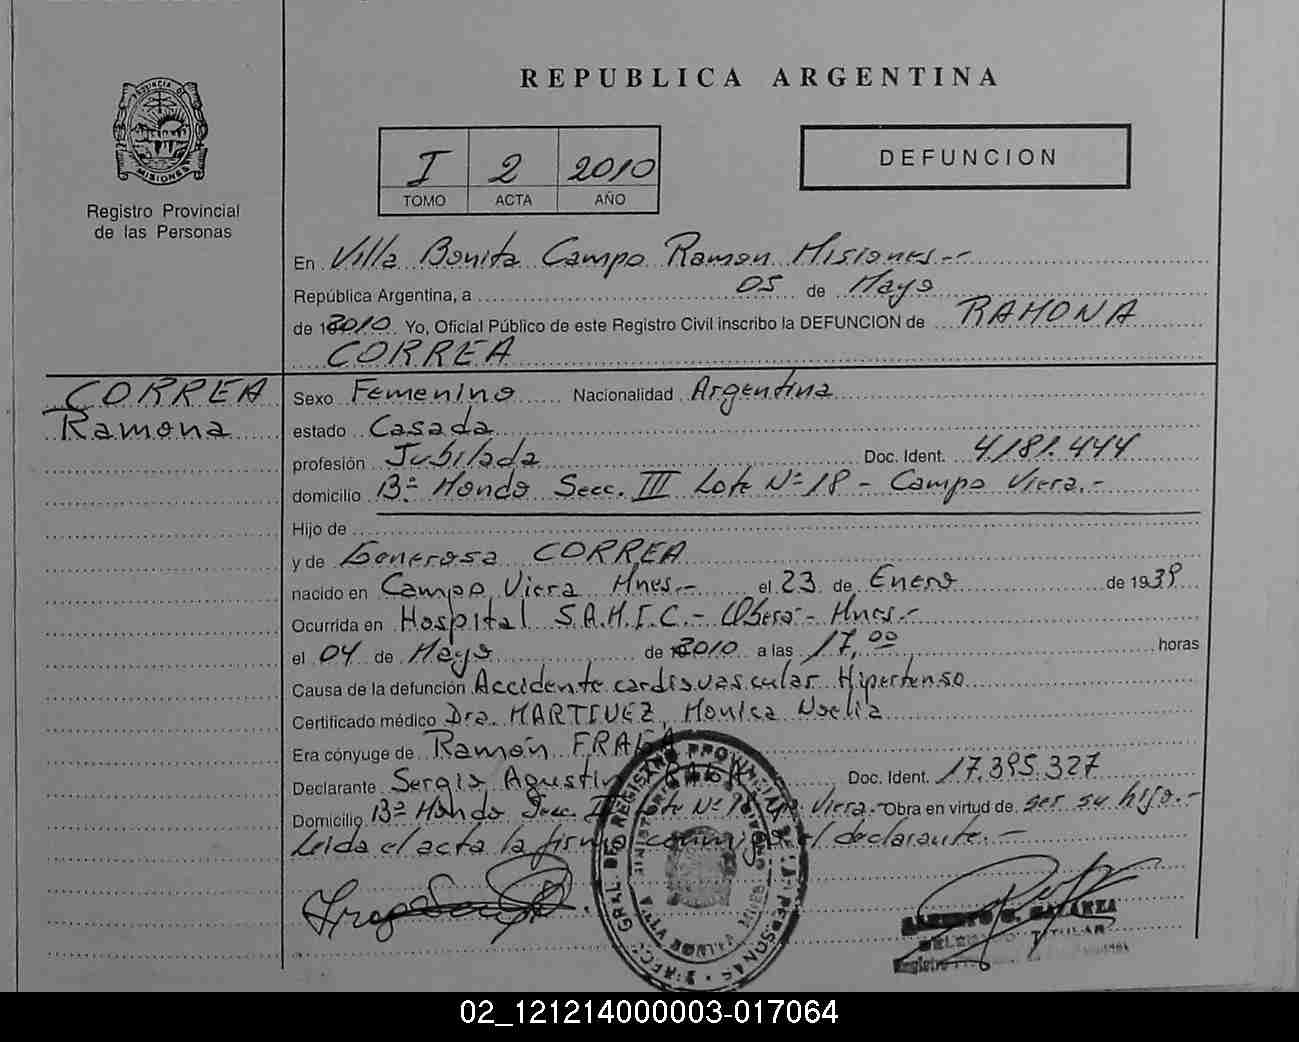 REPUBLICA ARGENTINA
PROVINCIA DE
MISIONES
Registro Provincial
de las Personas
I 2 2010
TOMO ACTA AÑO
DEFUNCION
En Villa Bonita Campo Ramon Misiones.-
República Argentina, a 05 de Mayo
de 2010 Yo, Oficial Público de este Registro Civil inscribo la DEFUNCION de RAMONA
CORREA
CORREA
Ramona
Sexo Femenino Nacionalidad Argentina
estado Casada
profesión Jubilada Doc. Ident. 4.181.444
domicilio Bº Hondo Secc. III Lote Nº 18 - Campo Viera.-
Hijo de
y de Generosa CORREA
nacido en Campo Viera Mnes.- el 23 de Enero de 1939
Ocurrida en Hospital S.A.M.I.C.- Obera - Mnes.-
el 04 de Mayo de 2010 a las 17,00 horas
Causa de la defunción Accidente cardiovascular Hipertenso
Certificado médico Dra. MARTINEZ, Monica Noelia
Era cónyuge de Ramón FRAGA
Declarante Sergio Agustin FRAGA Doc. Ident. 17.395.327
Domicilio Bº Hondo Secc. III Lote Nº 18 Viera.- Obra en virtud de ser su hijo.-
Leida el acta la firma conmigo el declarante.-
TITULAR
Registro
02_121214000003-017064